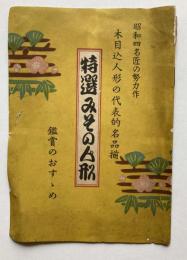 昭和四名匠の努力作
木目込人形の代表的名品揃
特選みその人形
鑑賞のおすゝめ